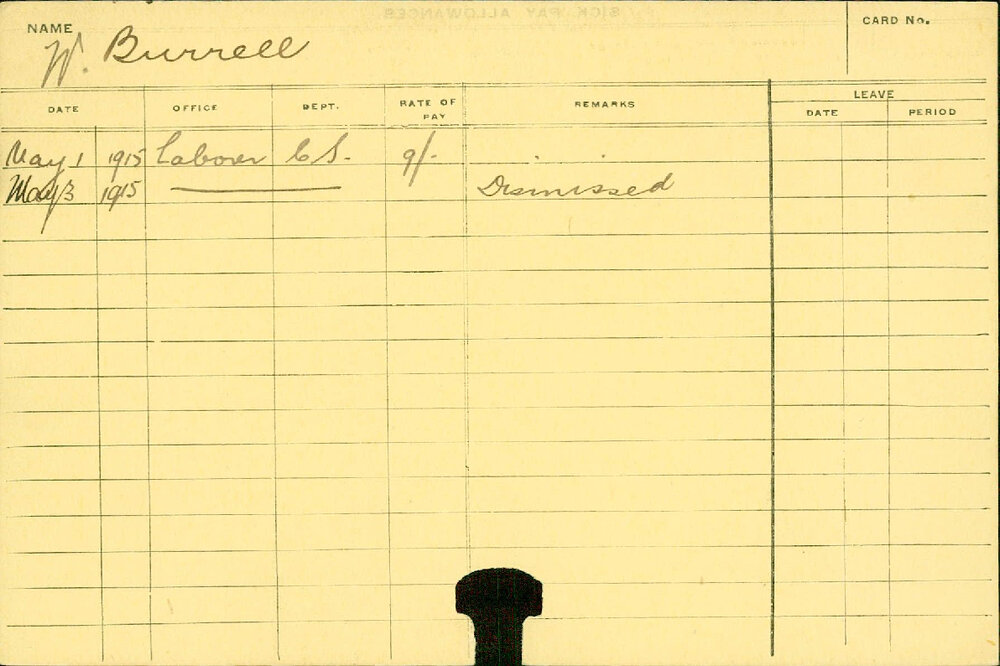 SICK PAY ALLOWANCES
NAME W. Burrell
CARD No.
DATE OFFICE DEPT. RATE OF PAY REMARKS LEAVE
DATE PERIOD
May 1 1915 Laborer C.S. 9/-
May 3 1915 Dismissed